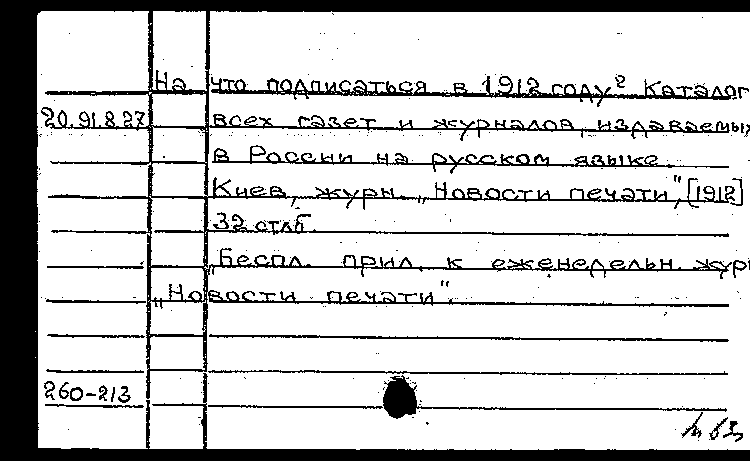 На что подписаться в 1912 году? Каталог
20.91.8.27 всех газет и журналов, издаваемых
в России на русском языке.
Киев, журн. „Новости печати", [1912]
32 стлб.
„Беспл. прил. к еженедельн. журн
„Новости печати".
260-213